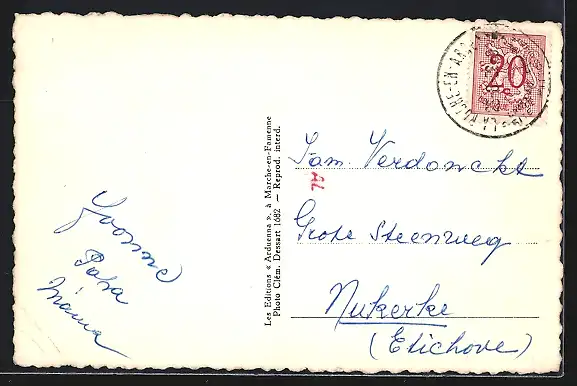 Yvonne
Papa
Mama
Les Editions « Arduenna », à Marche-en-Famenne
Photo Clém. Dessart 1682 — Reprod. interd.
20
c
LA ROCHE-EN-ARD
Fam. Verdonckt
AL
Grote Steenweg
Nukerke
(Etichove)